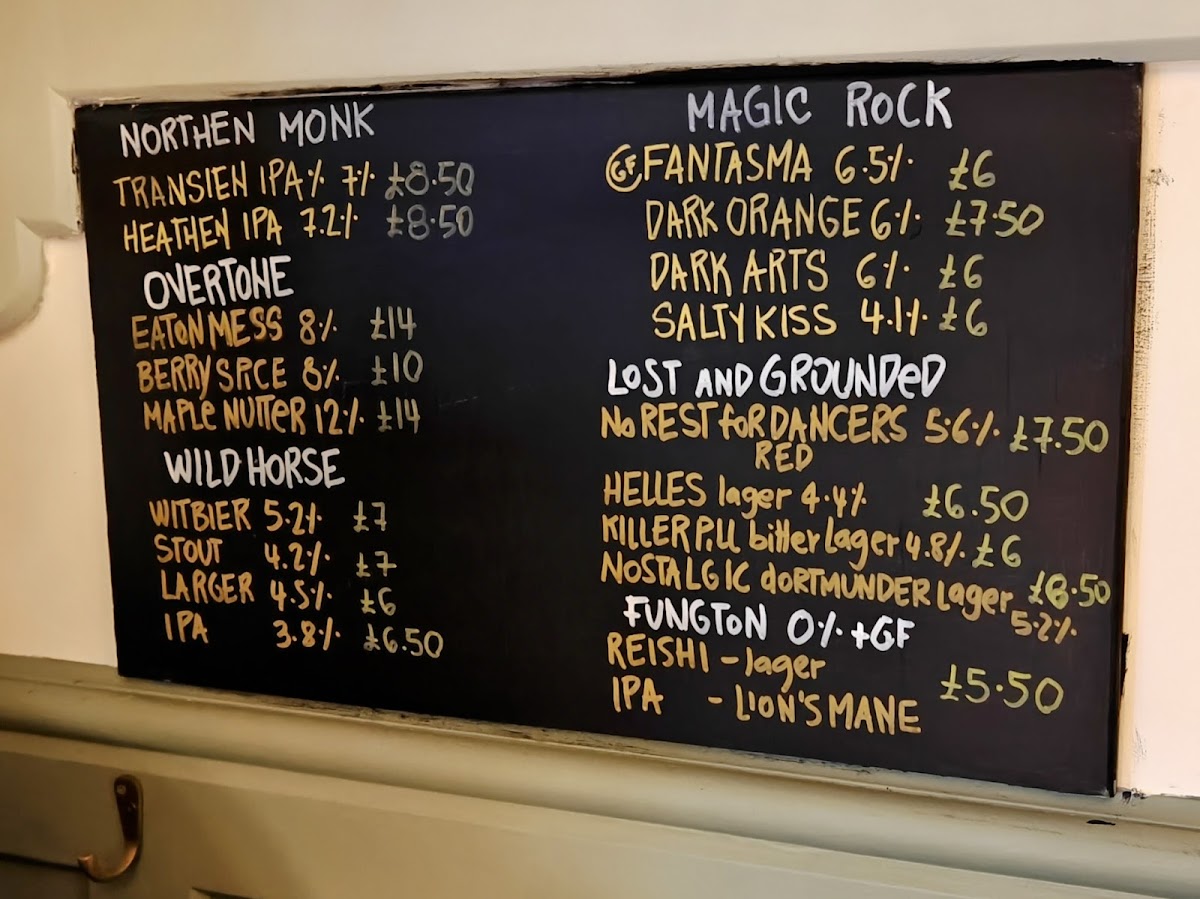 NORTHEN MONK
TRANSIEN IPA % 7% £8.50
HEATHEN IPA 7.2% £8.50
OVERTONE
EATON MESS 8% £14
BERRY SPICE 8% £10
MAPLe NUTTeR 12% £14
WILD HORSE
WITBIER 5.2% £7
STOUT 4.2% £7
LARGER 4.5% £6
IPA 3.8% £6.50
MAGIC ROCK
GF FANTASMA 6.5% £6
DARK ORANGE 6% £7.50
DARK ARTS 6% £6
SALTY KISS 4.1% £6
LOST AND GROUNDeD
No REST foR DANCERS 5.6% £7.50
RED
HELLES lager 4.4% £6.50
KILLER P.U bitter Lager 4.8% £6
NOSTALGIC dORTMUNDER Lager £6.50
5.2%
FUNGToN 0% +GF
REISHI - lager
£5.50
IPA - LION'S MANE